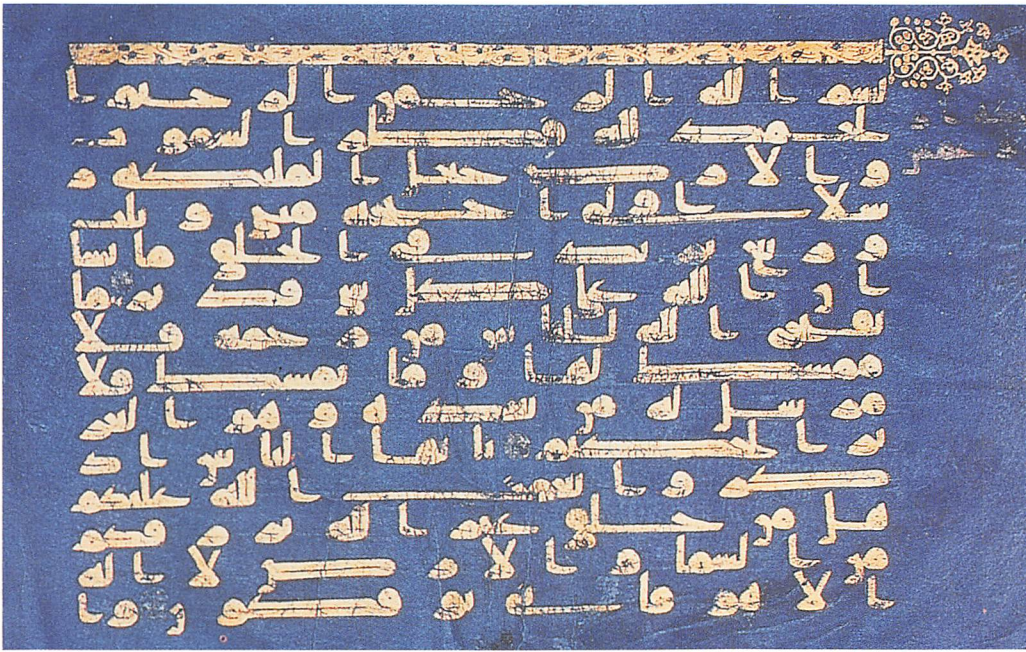 بسم الله الرحمن الرحيم ا
لحمد لله فطر السموت
والارض جعل الملئكة ر
سلا اولى اجنحة مثنى وثلث
وربع يزيد في الخلق ما يشا
ان الله على كل شى قدير ما
يفتح الله للناس من رحمة فلا
ممسك لها وما يمسك فلا
مرسل له من بعده وهو العز
يز الحكيم يايها الناس اذ
كروا نعمت الله عليكم
هل من خلق غير الله يرزقكم
من السما والارض لا اله
الا هو فانى توفكون وا